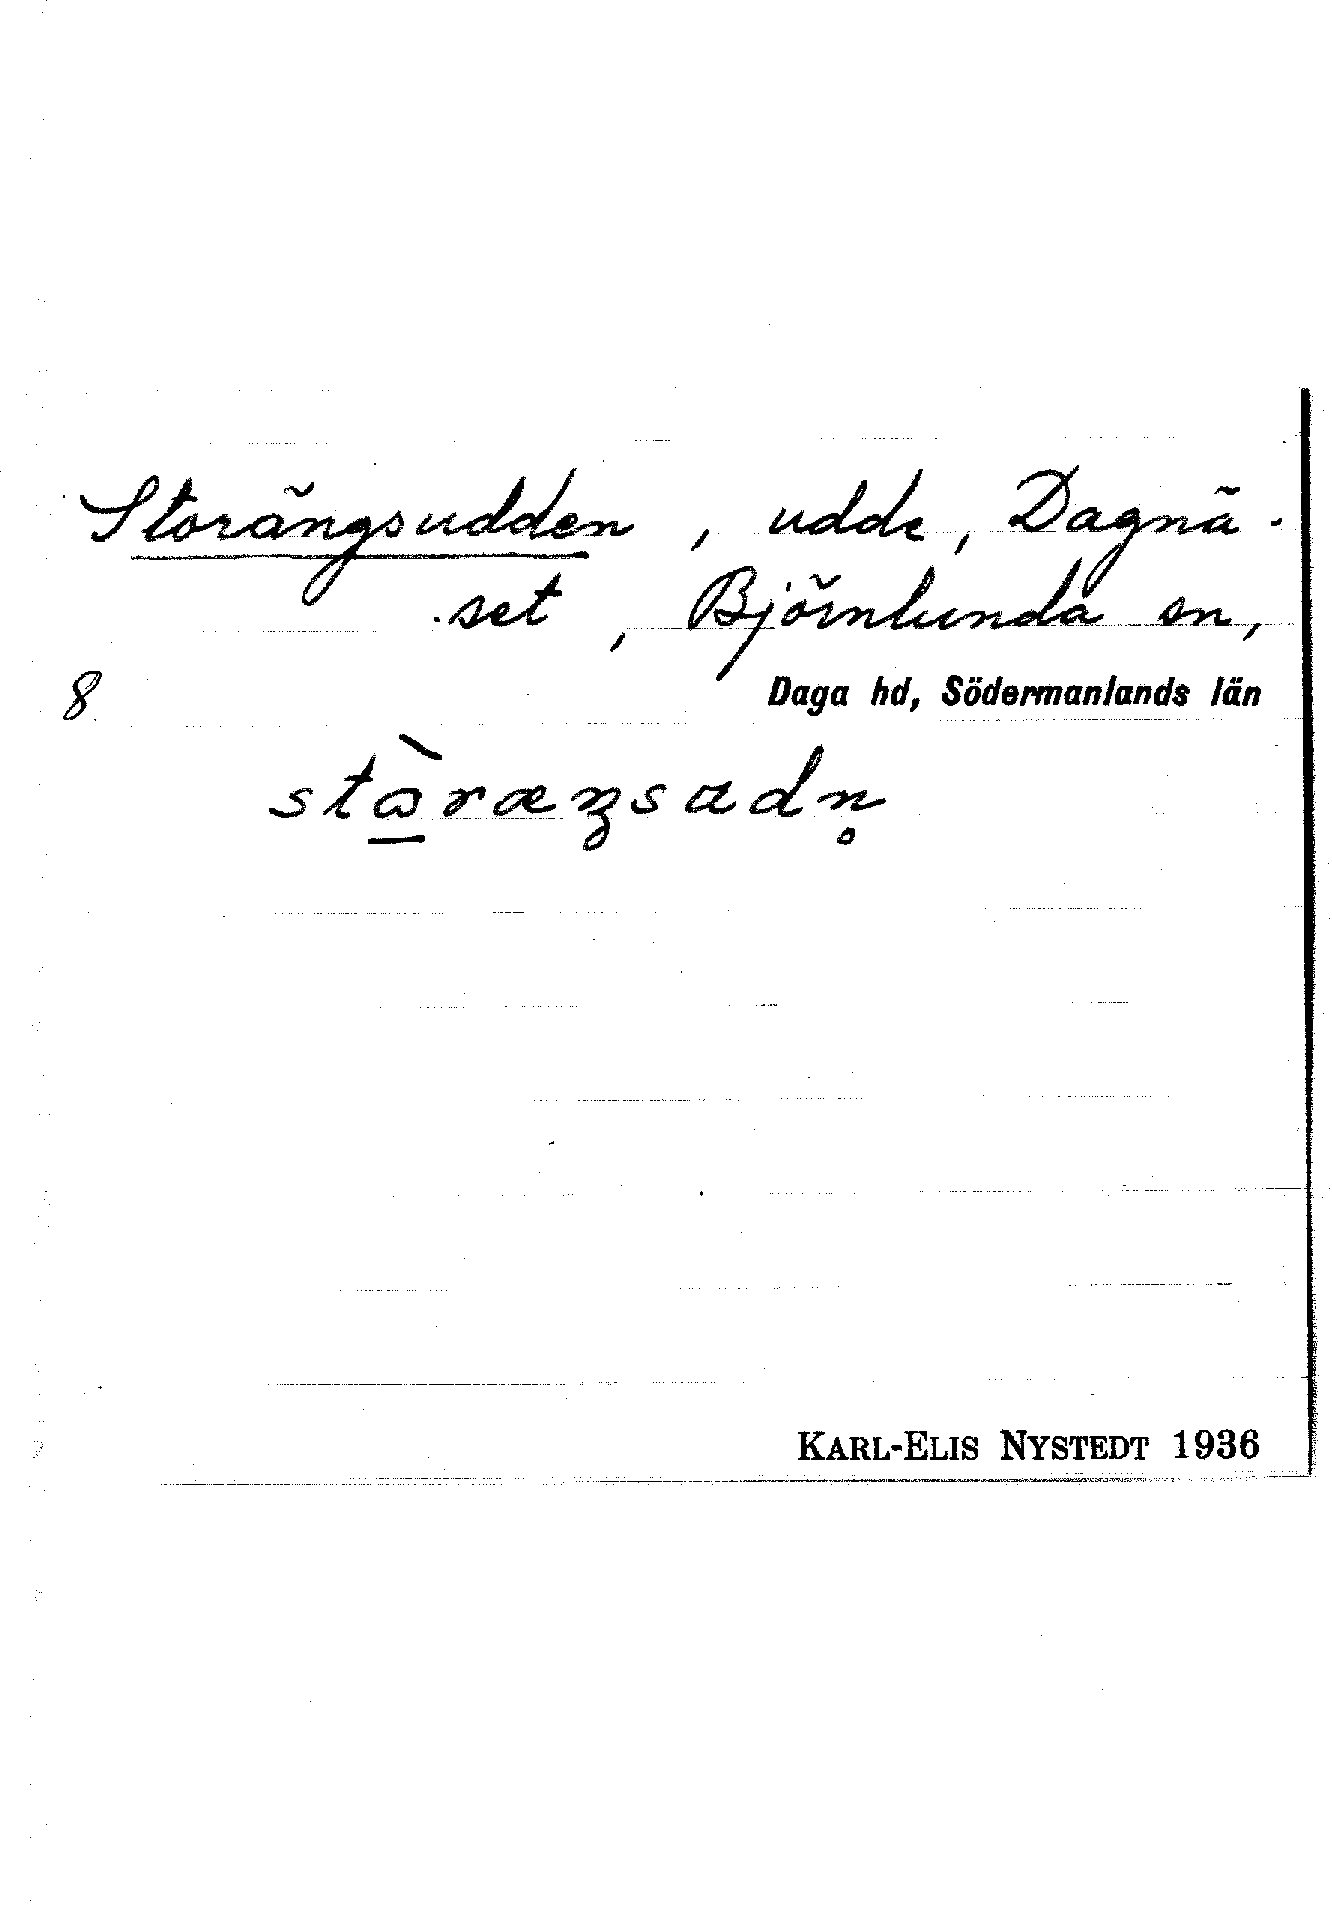 Storängsudden, udde, Dagnä-
set, Björnlunda sn,
8 Daga hd, Södermanlands län
KARL-ELIS NYSTEDT 1936